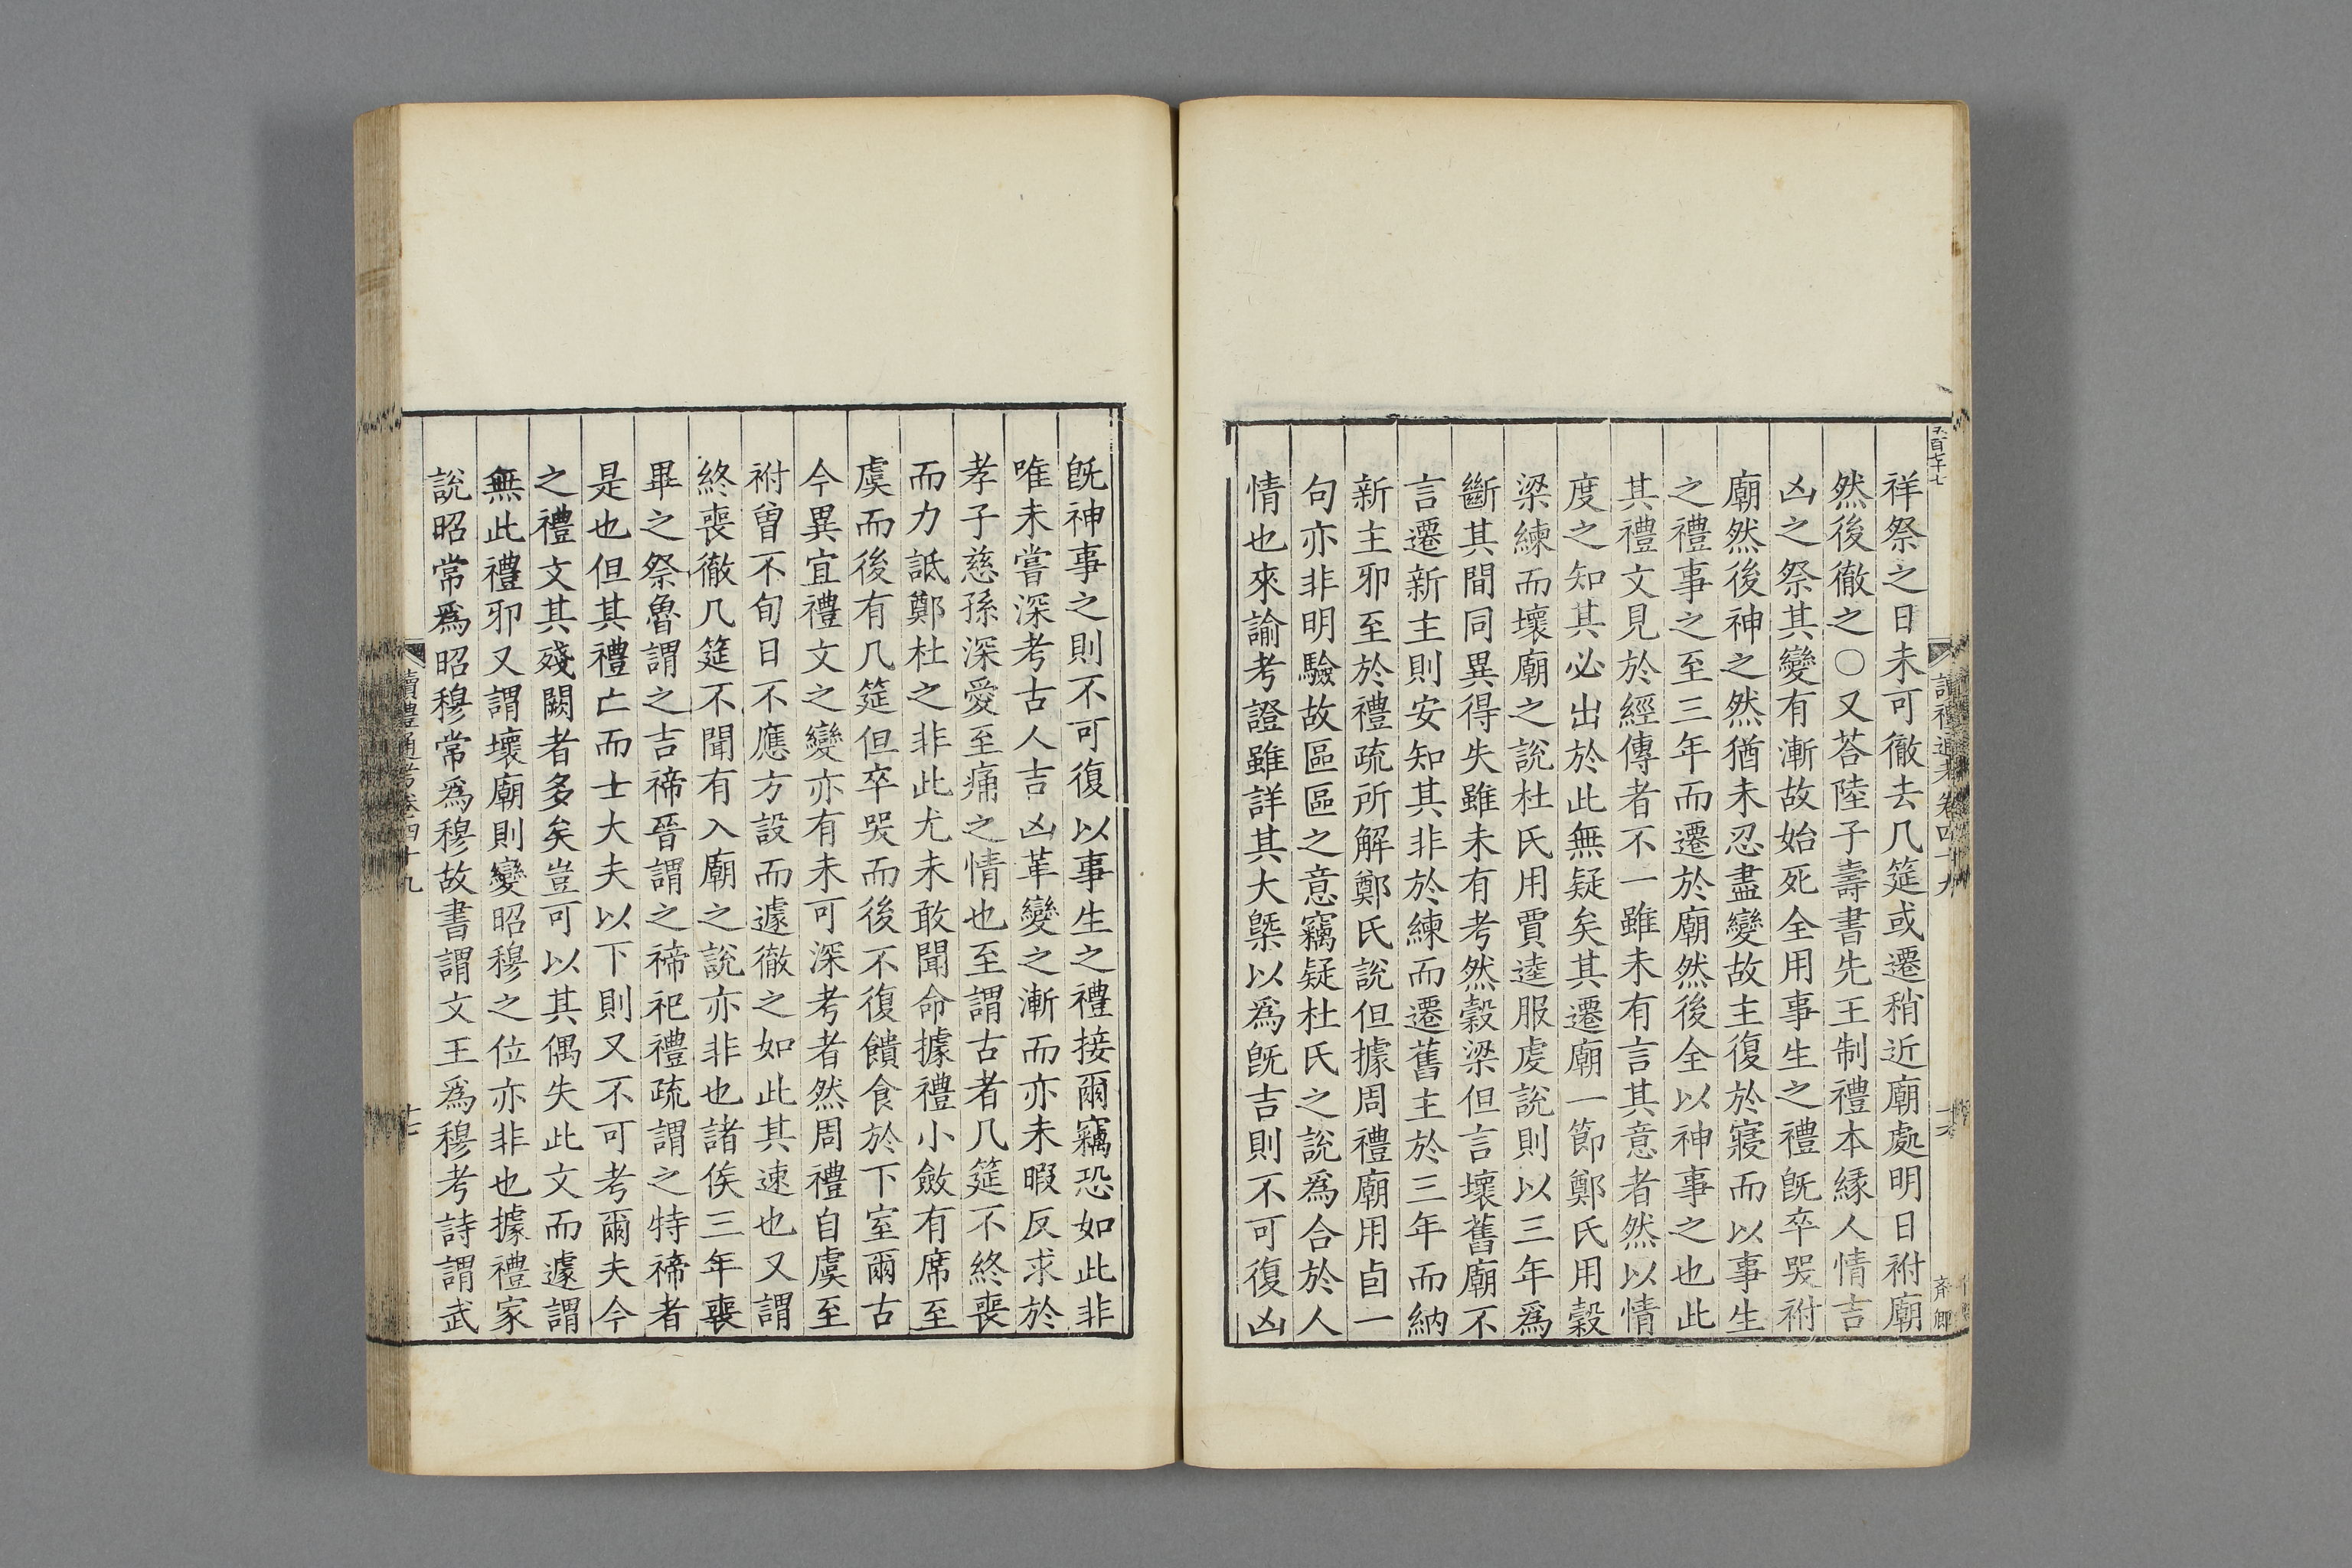 祥祭之日未可徹去几筵或遷稍近廟處明日祔廟
然後徹之○又荅陸子壽書先王制禮本緣人情吉
凶之祭其變有漸故始死全用事生之禮旣卒哭祔
廟然後神之然猶未忍盡變故主復於寢而以事生
之禮事之至三年而遷於廟然後全以神事之也此
其禮文見於經傳者不一雖未有言其意者然以情
度之知其必出於此無疑矣其遷廟一節鄭氏用穀
梁練而壞廟之說杜氏用賈逵服虔說則以三年爲
斷其間同異得失雖未有考然穀梁但言壞舊廟不
言遷新主則安知其非於練而遷舊主於三年而納
新主邪至於禮疏所解鄭氏說但據周禮廟用卣一
句亦非明驗故區區之意竊疑杜氏之說爲合於人
情也來諭考證雖詳其大槩以爲旣吉則不可復凶
旣神事之則不可復以事生之禮接爾竊恐如此非
唯未嘗深考古人吉凶革變之漸而亦未暇反求於
孝子慈孫深愛至痛之情也至謂古者几筵不終喪
而力詆鄭杜之非此尤未敢聞命據禮小斂有席至
虞而後有几筵但卒哭而後不復饋食於下室爾古
今異宜禮文之變亦有未可深考者然周禮自虞至
祔曾不旬日不應方設而遽徹之如此其速也又謂
終喪徹几筵不聞有入廟之說亦非也諸侯三年喪
畢之祭魯謂之吉禘晉謂之禘祀禮疏謂之特禘者
是也但其禮亡而士大夫以下則又不可考爾夫今
之禮文其殘闕者多矣豈可以其偶失此文而遽謂
無此禮邪又謂壞廟則變昭穆之位亦非也據禮家
說昭常爲昭穆常爲穆故書謂文王爲穆考詩謂武
讀禮通考卷四十九
十七